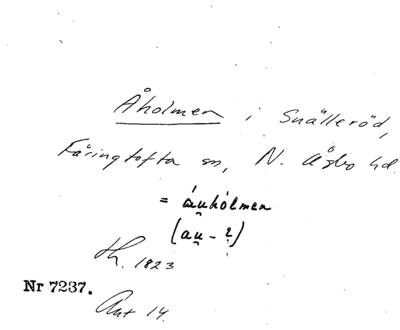 Åholmen i Snälleröd,
Färingtofta sn, N. Åsbo hd.
= áu̯hòlmen
(au̯ - ?)
th. 1823
Nr 7237.
Ant 14.